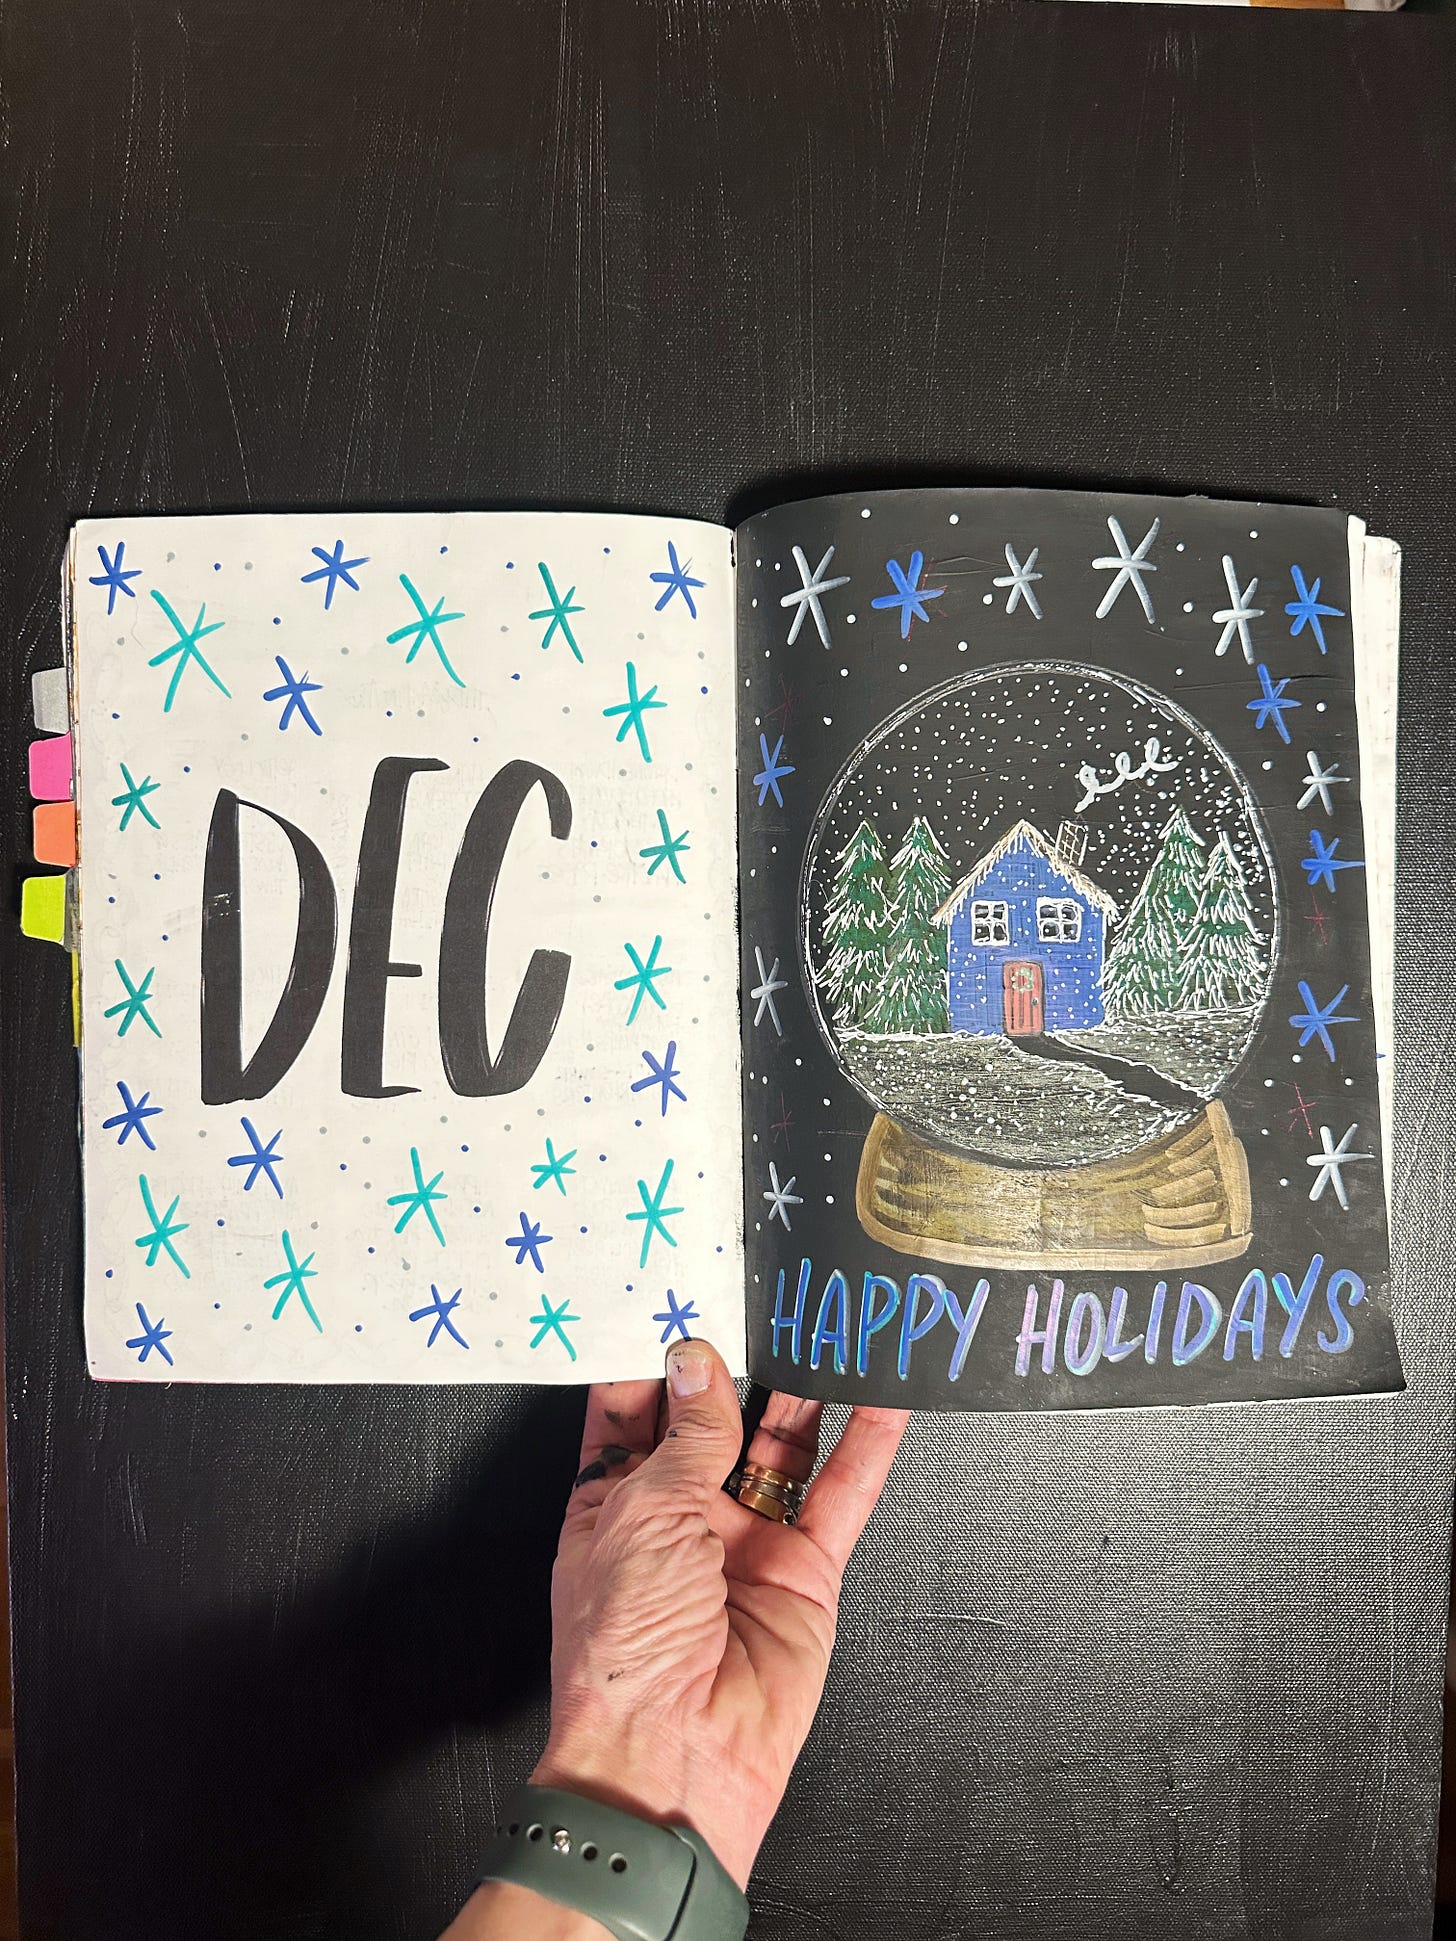 DEC
HAPPY HOLIDAYS